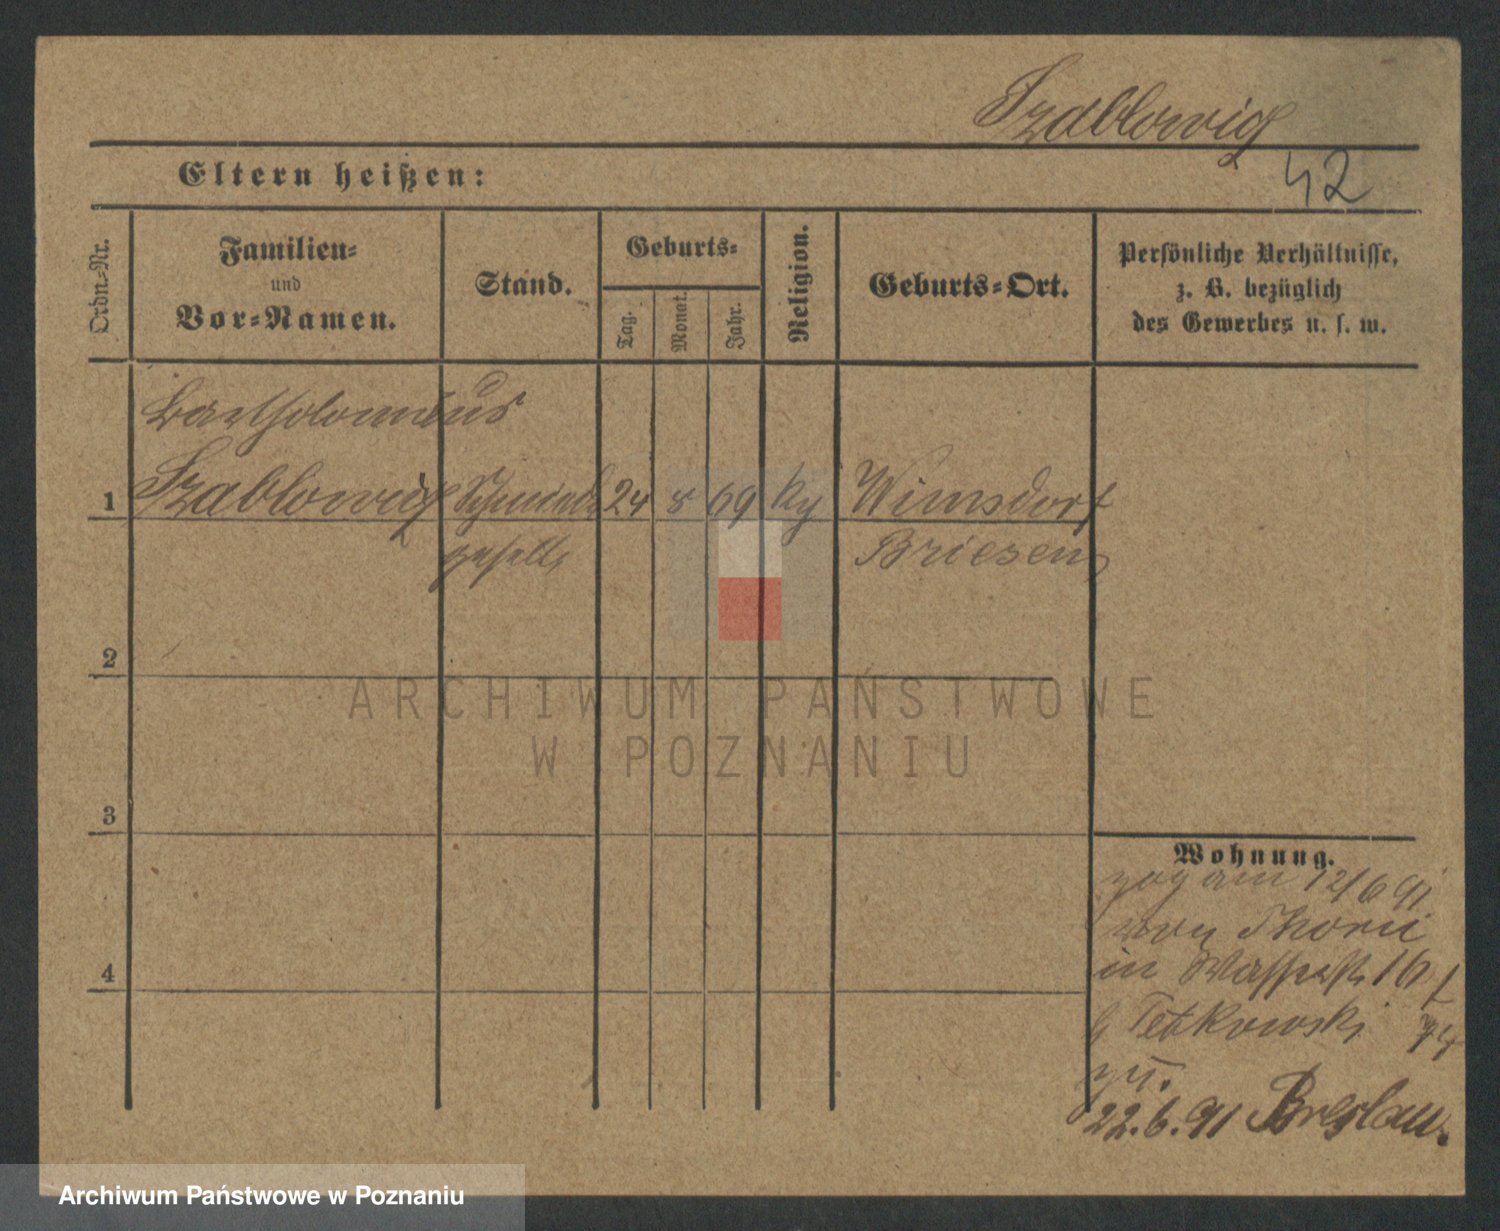 Szablowig
42
Eltern heißen:
Ordn.-Nr.
Familien-
und
Vor-Namen.
Stand.
Geburts-
Tag.
Monat.
Jahr.
Religion.
Geburts-Ort.
Persönliche Verhältnisse,
z. B. bezüglich
des Gewerbes u. s. w.
Bartholomäus
1 Szablowig Schmiede 24 8 69 kg Wimsdorf
gesell Briesen
2
ARCHIWUM PAŃSTWOWE
W POZNANIU
3
Wohnung.
zog am 12/6 91
von Thorn
in Wasserstr 16
b Tetkowski
zu.
4
22.6.91 Breslau.
Archiwum Państwowe w Poznaniu